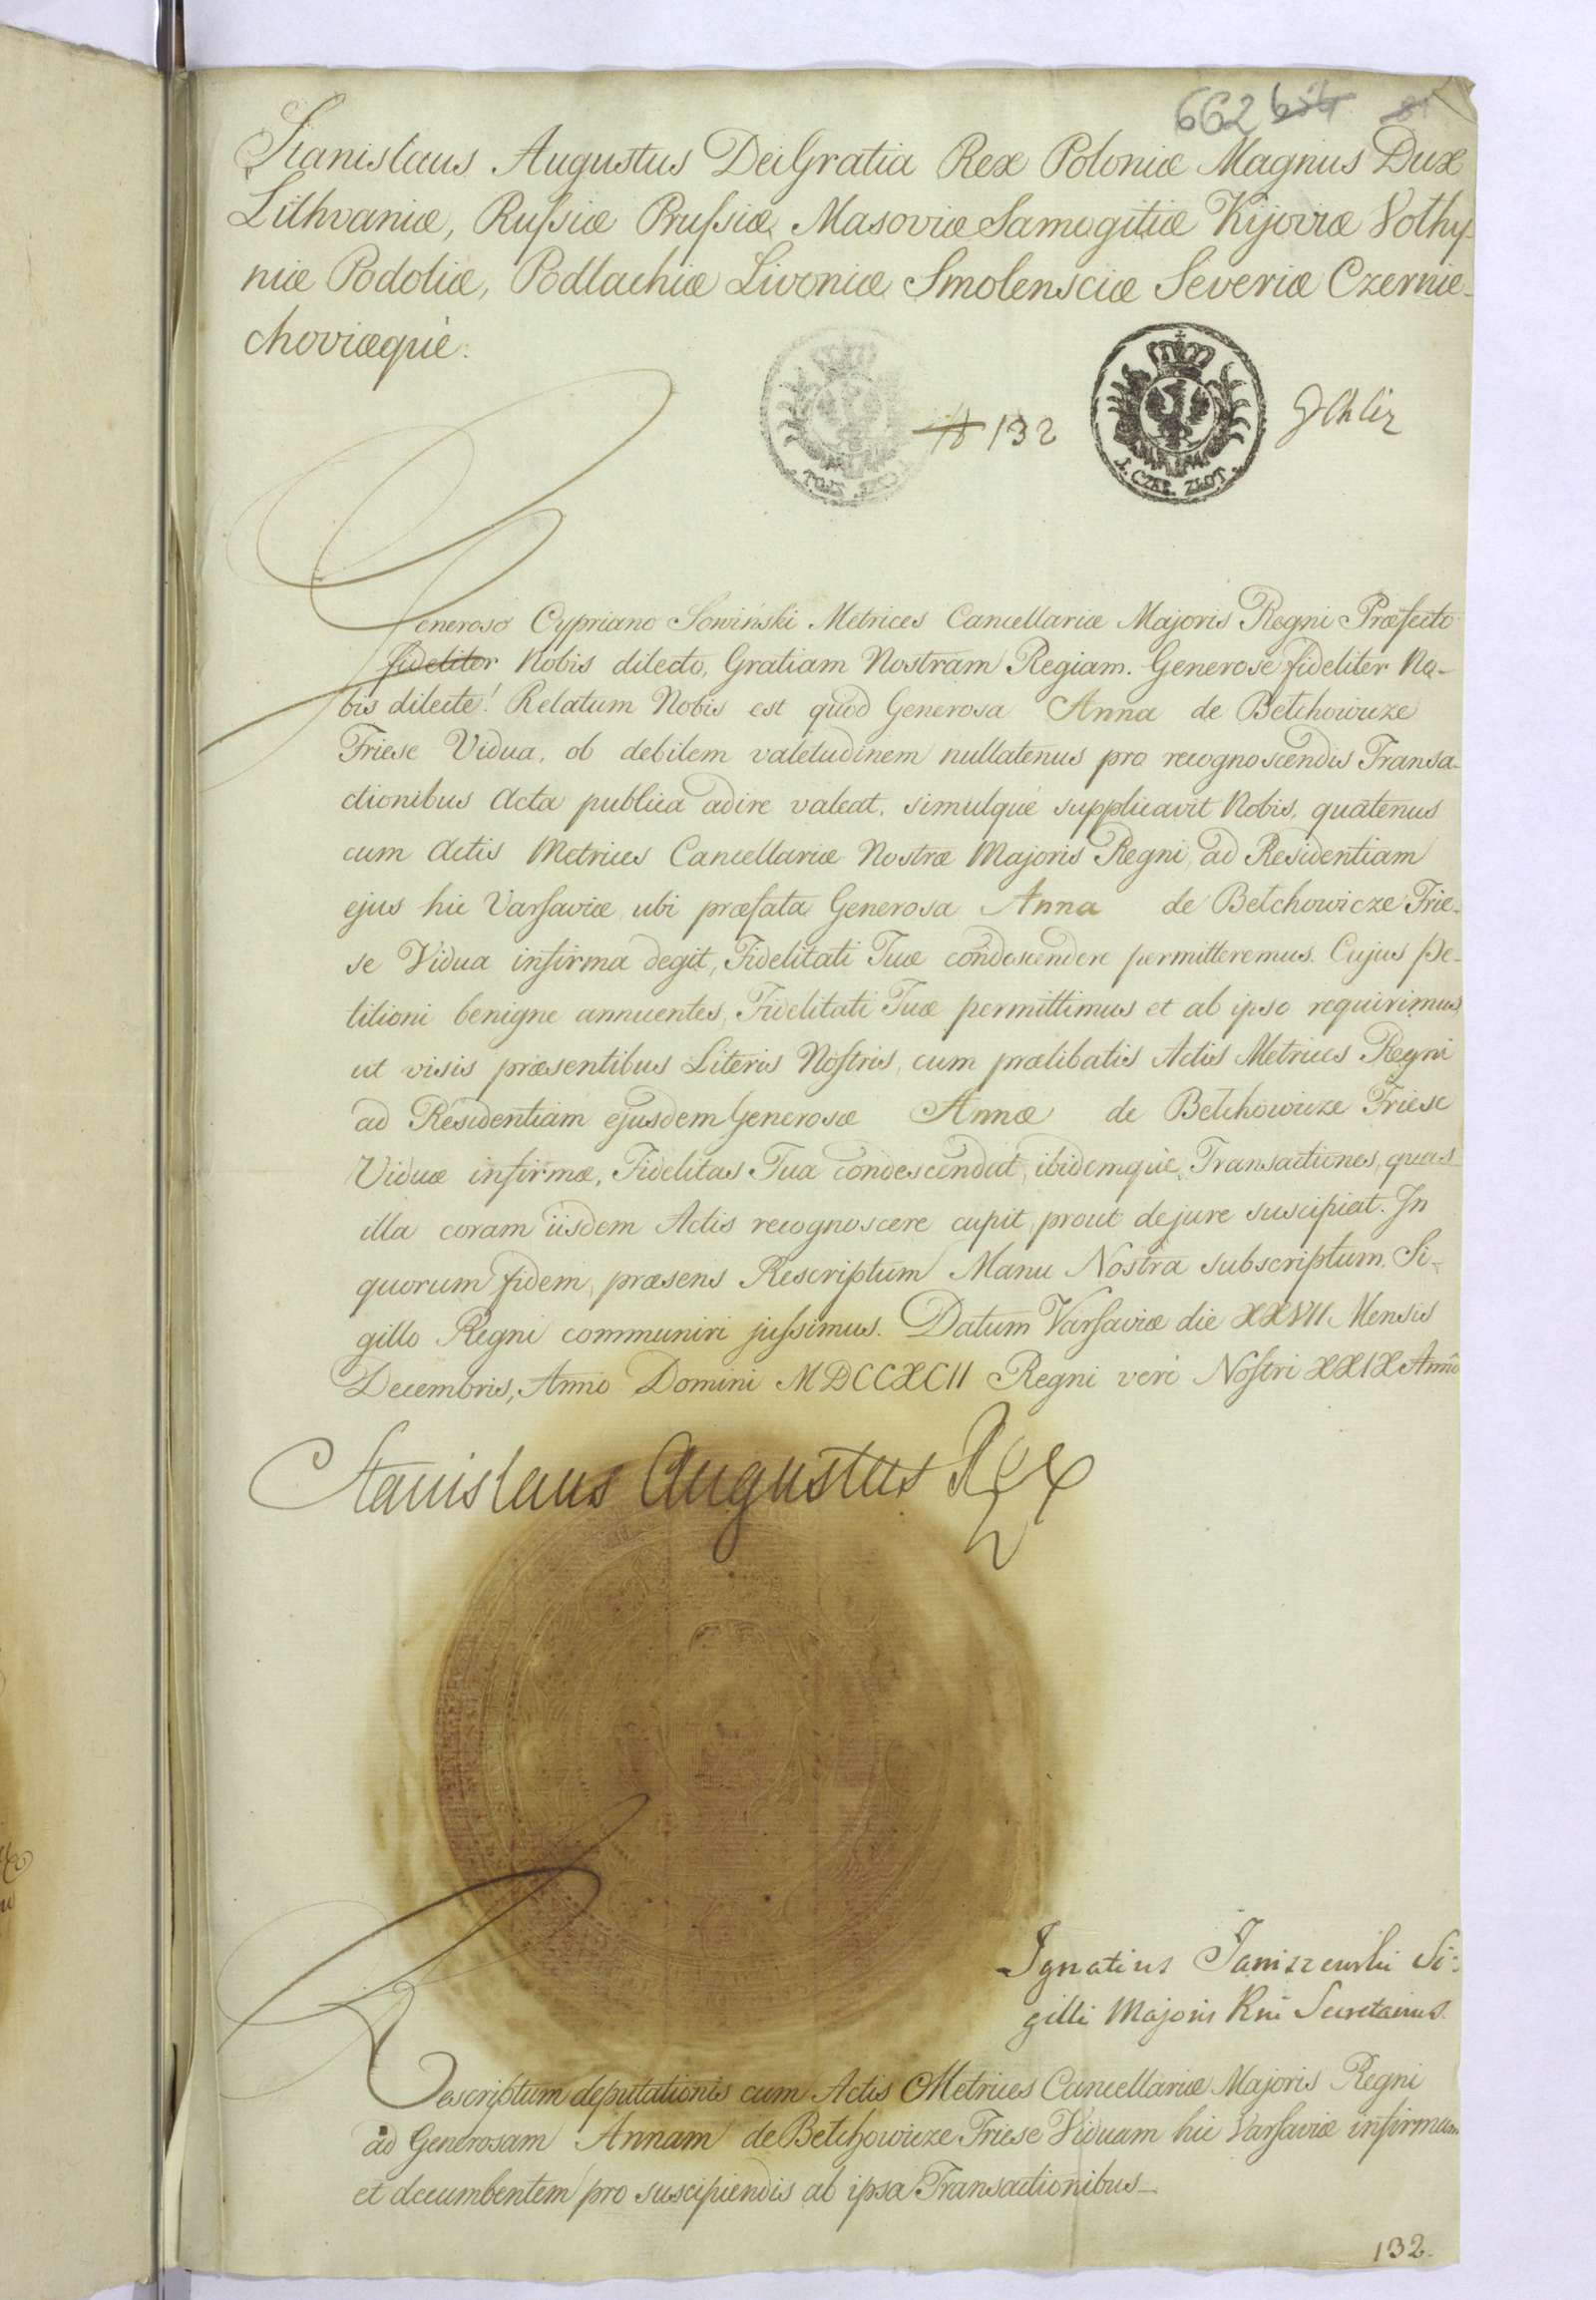 662 81
Stanislaus Augustus Dei Gratia Rex Poloniæ Magnus Dux
Lithvaniæ, Rußiæ Prußiæ Masoviæ Samogitiæ Kijoviæ Volhy-
niæ Podoliæ, Podlachiæ Livoniæ Smolensciæ Severiæ Czernie-
choviæque.
132
1. CZER. ZŁOT.
Generoso Cypriano Sowiński Metrices Cancellariæ Majoris Regni Præfecto
fideliter Nobis dilecto, Gratiam Nostram Regiam. Generose fideliter No-
bis dilecte! Relatum Nobis est quod Generosa Anna de Betchowicze
Friese Vidua, ob debilem valetudinem nullatenus pro recognoscendis Transa-
ctionibus Acta publica adire valeat, simulque supplicavit Nobis, quatenus
cum Actis Metrices Cancellariæ Nostræ Majoris Regni, ad Residentiam
ejus hic Varsaviæ ubi præfata Generosa Anna de Betchowicze Frie-
se Vidua infirma degit, Fidelitati Tuæ condescendere permitteremus. Cujus Pe-
titioni benigne annuentes, Fidelitati Tuæ permittimus et ab ipso requirimus,
ut visis præsentibus Literis Nostris, cum prælibatis Actis Metrices Regni
ad Residentiam ejusdem Generosæ Annæ de Betchowicze Friese
Viduæ infirmæ, Fidelitas Tua condescendat, ibidemque Transactiones, quas
illa coram iisdem Actis recognoscere cupit, prout de jure suscipiat. In
quorum fidem, præsens Rescriptum Manu Nostra subscriptum, Si-
gillo Regni communiri jußimus. Datum Varsaviæ die XXVII Mensis
Decembris, Anno Domini MDCCXCII Regni veró Nostri XXIX Anno
Stanislaus Augustus Rex
Ignatius Janiszewski Si-
gilli Majoris Rni Secretarius.
Rescriptum deputationis cum Actis Metrices Cancellariæ Majoris Regni
ad Generosam Annam de Betchowicze Friese Viduam hic Varsaviæ infirmam
et decumbentem pro suscipiendis ab ipsa Transactionibus_
132.